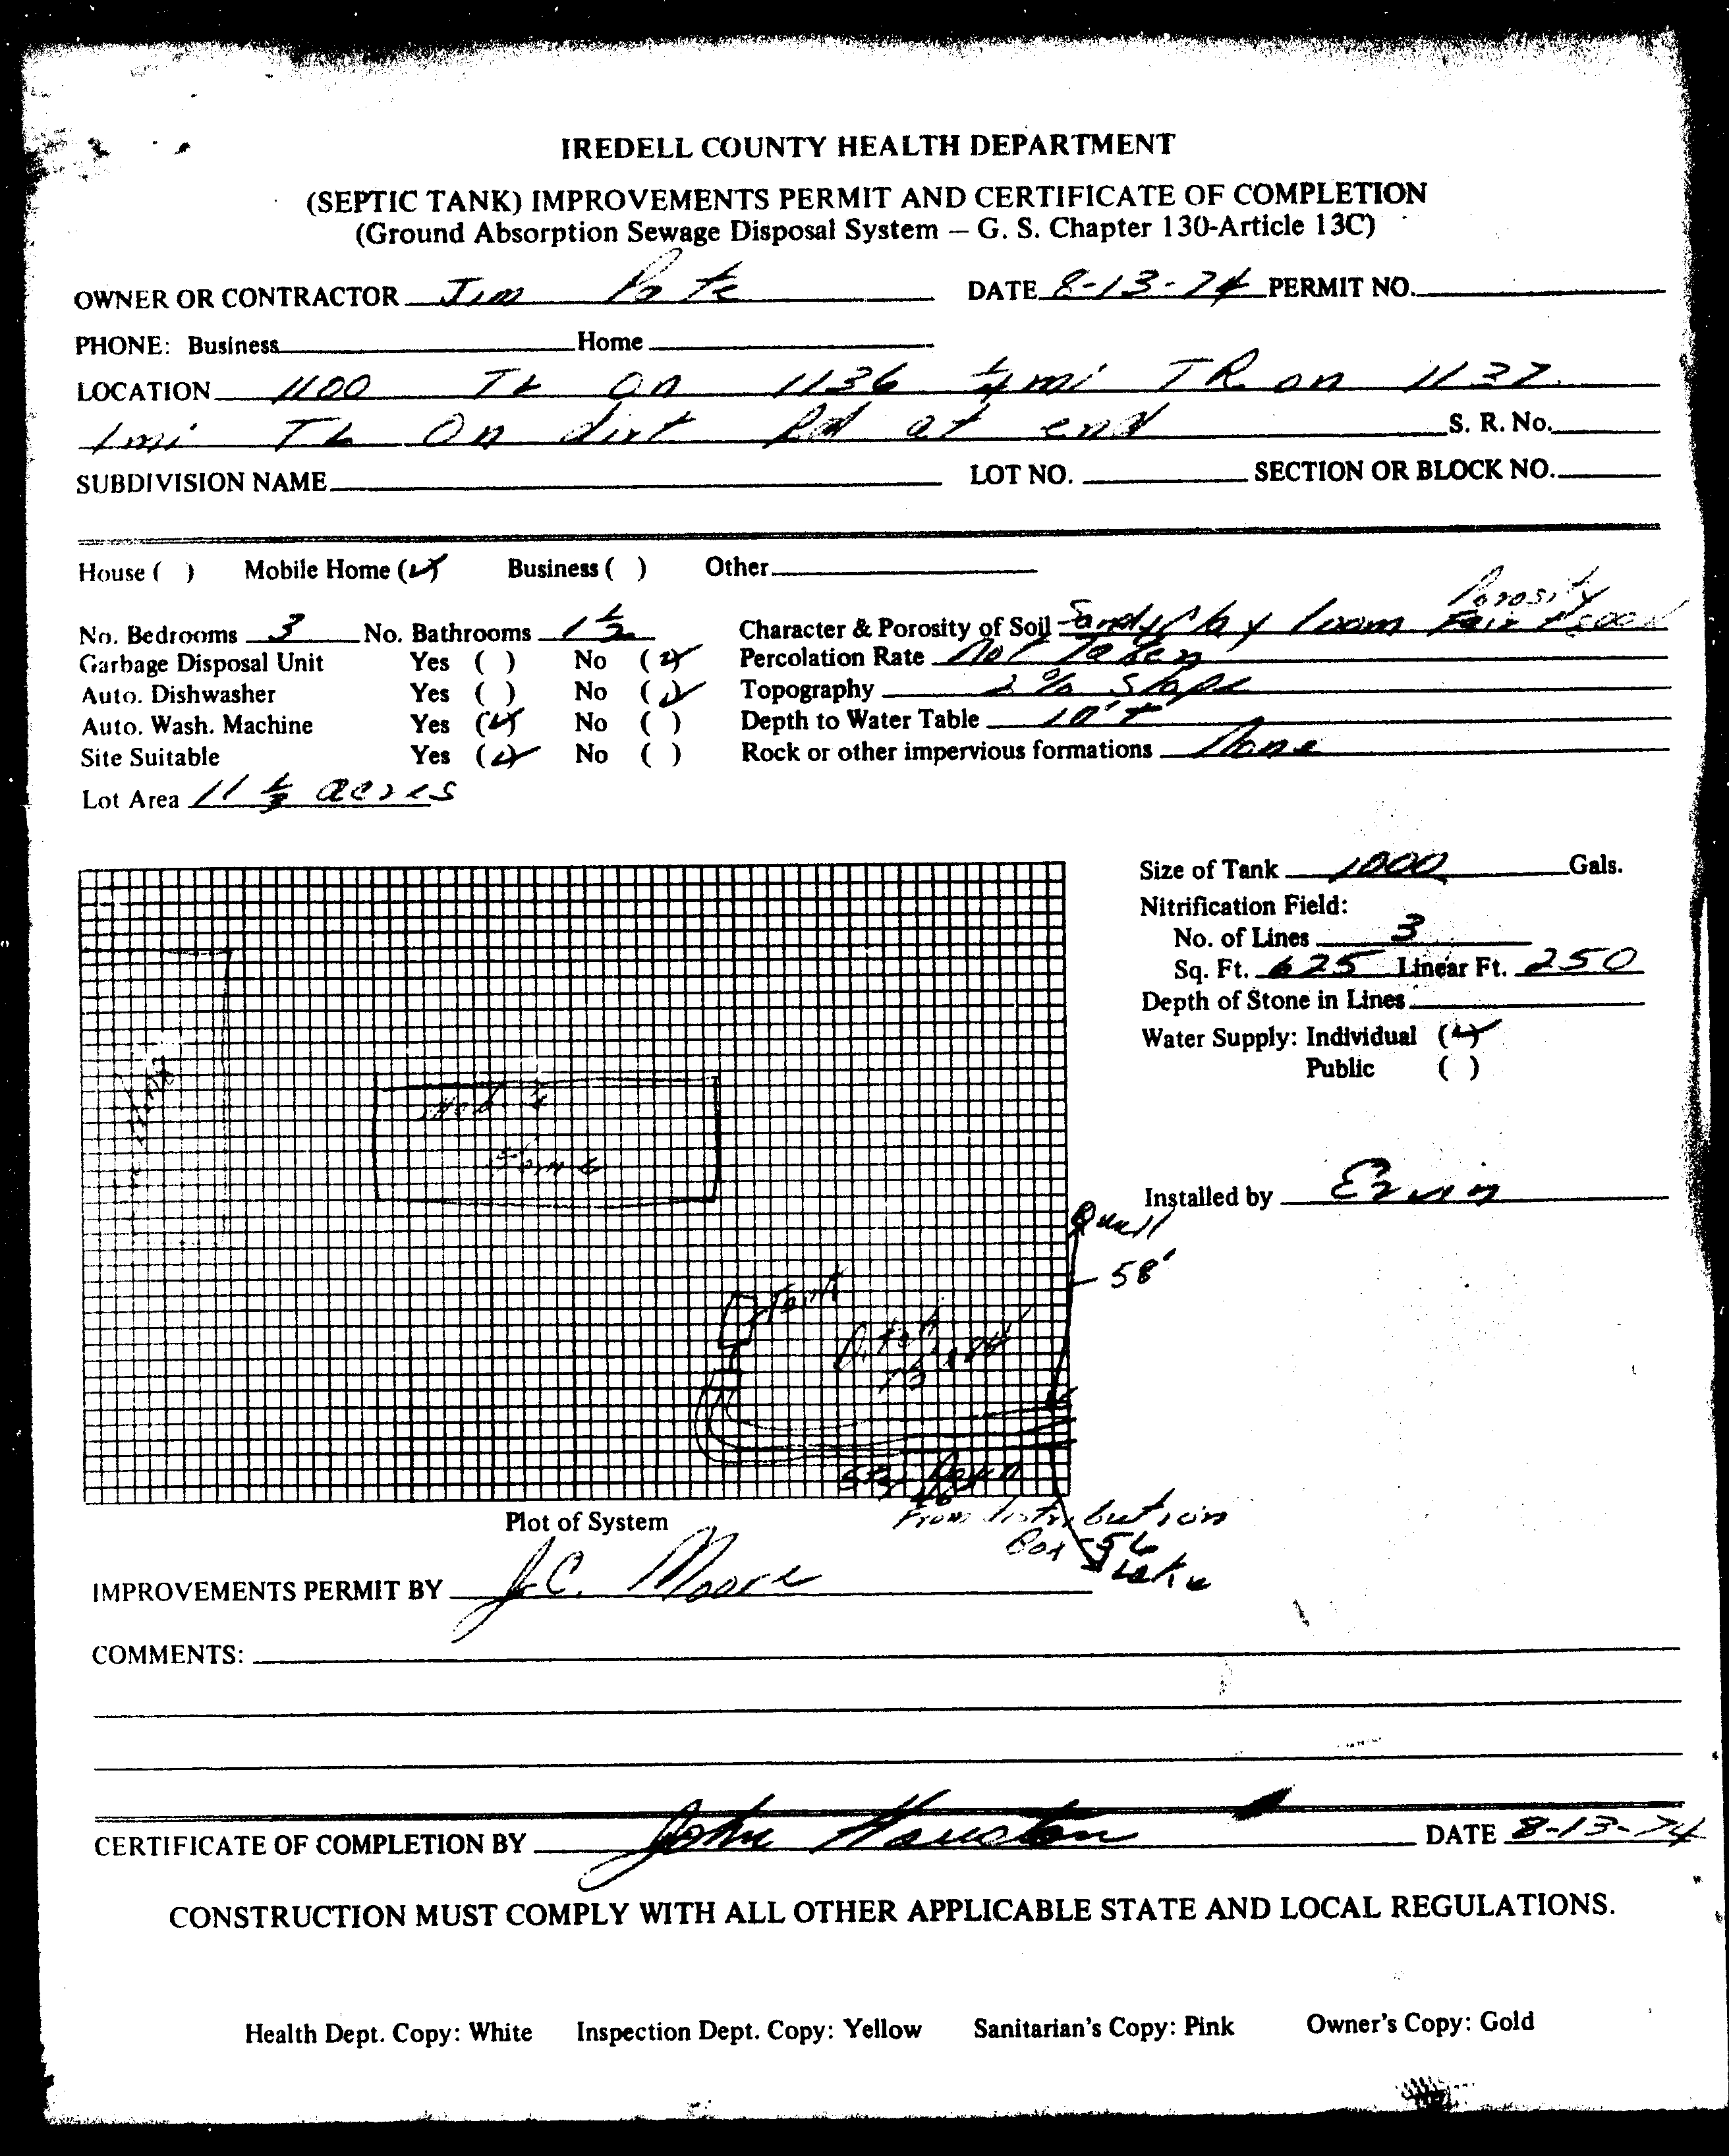 IREDELL COUNTY HEALTH DEPARTMENT
(SEPTIC TANK) IMPROVEMENTS PERMIT AND CERTIFICATE OF COMPLETION
(Ground Absorption Sewage Disposal System – G. S. Chapter 130-Article 13C)
OWNER OR CONTRACTOR Jim Pate DATE 8-13-74 PERMIT NO.
PHONE: Business Home
LOCATION 1100 TL on 1136 mi TR on 1137
1mi TL On dirt Rd at end S. R. No.
SUBDIVISION NAME LOT NO. SECTION OR BLOCK NO.
House ( ) Mobile Home (✓) Business ( ) Other
Porosity
No. Bedrooms 3 No. Bathrooms 1 1/2 Character & Porosity of Soil Sandy Clay loam Fair
Garbage Disposal Unit Yes ( ) No (✓) Percolation Rate Not Taken
Auto. Dishwasher Yes ( ) No (✓) Topography 2% Slope
Auto. Wash. Machine Yes (✓) No ( ) Depth to Water Table 10'+
Site Suitable Yes (✓) No ( ) Rock or other impervious formations None
Lot Area 11 1/3 acres
Size of Tank 1000 Gals.
Nitrification Field:
No. of Lines 3
Sq. Ft. 625 Linear Ft. 250
Depth of Stone in Lines
Water Supply: Individual (✓)
Public ( )
Installed by Ervin
58'
Tank
Down
From distribution
Box 56
Lake
Plot of System
IMPROVEMENTS PERMIT BY J.C. Moore
COMMENTS:
CERTIFICATE OF COMPLETION BY John Houston DATE 8-13-74
CONSTRUCTION MUST COMPLY WITH ALL OTHER APPLICABLE STATE AND LOCAL REGULATIONS.
Health Dept. Copy: White Inspection Dept. Copy: Yellow Sanitarian's Copy: Pink Owner's Copy: Gold